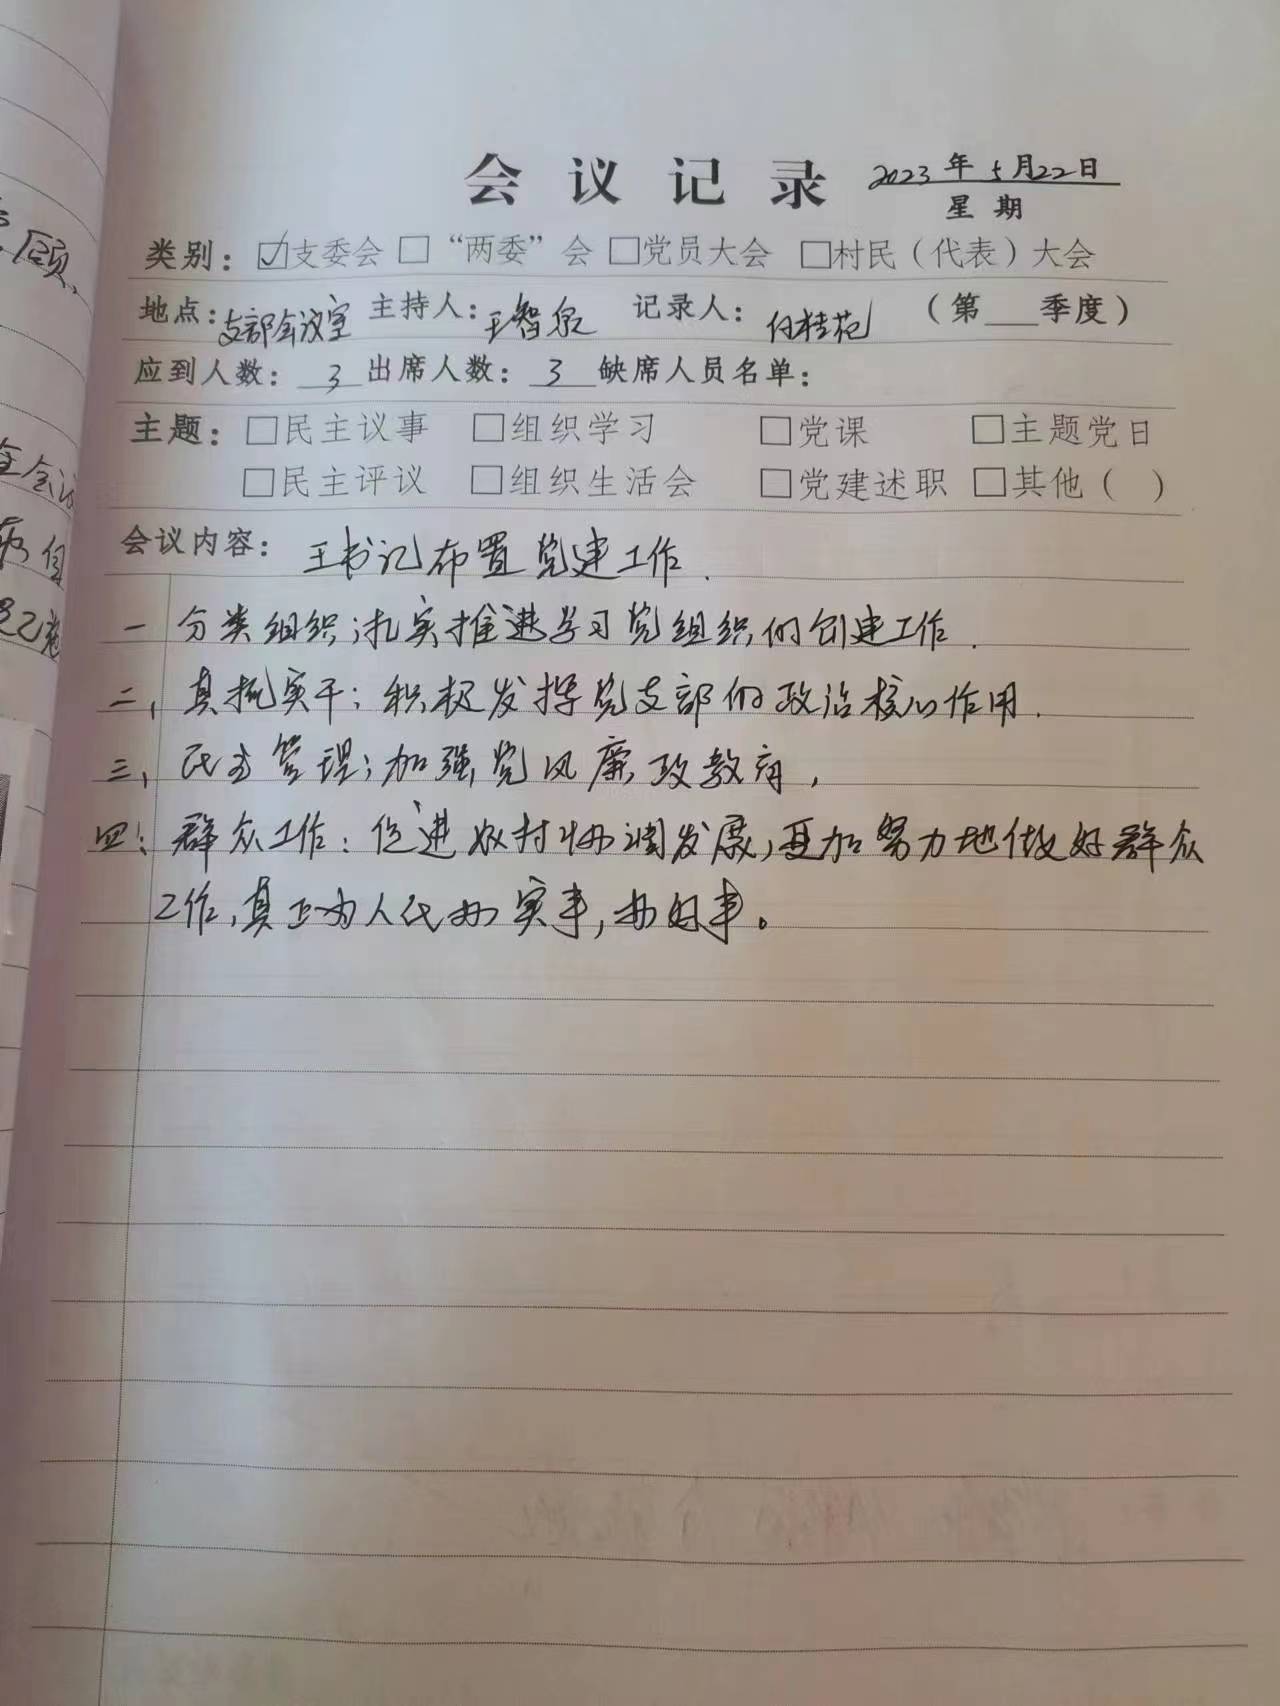 会议记录 2023年5月22日
星期
类别：☑支委会 □“两委”会 □党员大会 □村民（代表）大会
地点：支部会议室 主持人：王智泉 记录人：付桂苑 （第___季度）
应到人数：3 出席人数：3 缺席人员名单：
主题：□民主议事 □组织学习 □党课 □主题党日
□民主评议 □组织生活会 □党建述职 □其他（ ）
会议内容：王书记布置党建工作.
一 分类组织；扎实推进学习党组织的创建工作.
二、真抓实干：积极发挥党支部的政治核心作用.
三、民主管理；加强党风廉政教育，
四：群众工作：促进农村协调发展，更加努力地做好群众
工作，真正为人民办实事，办好事。
顾、
在会议